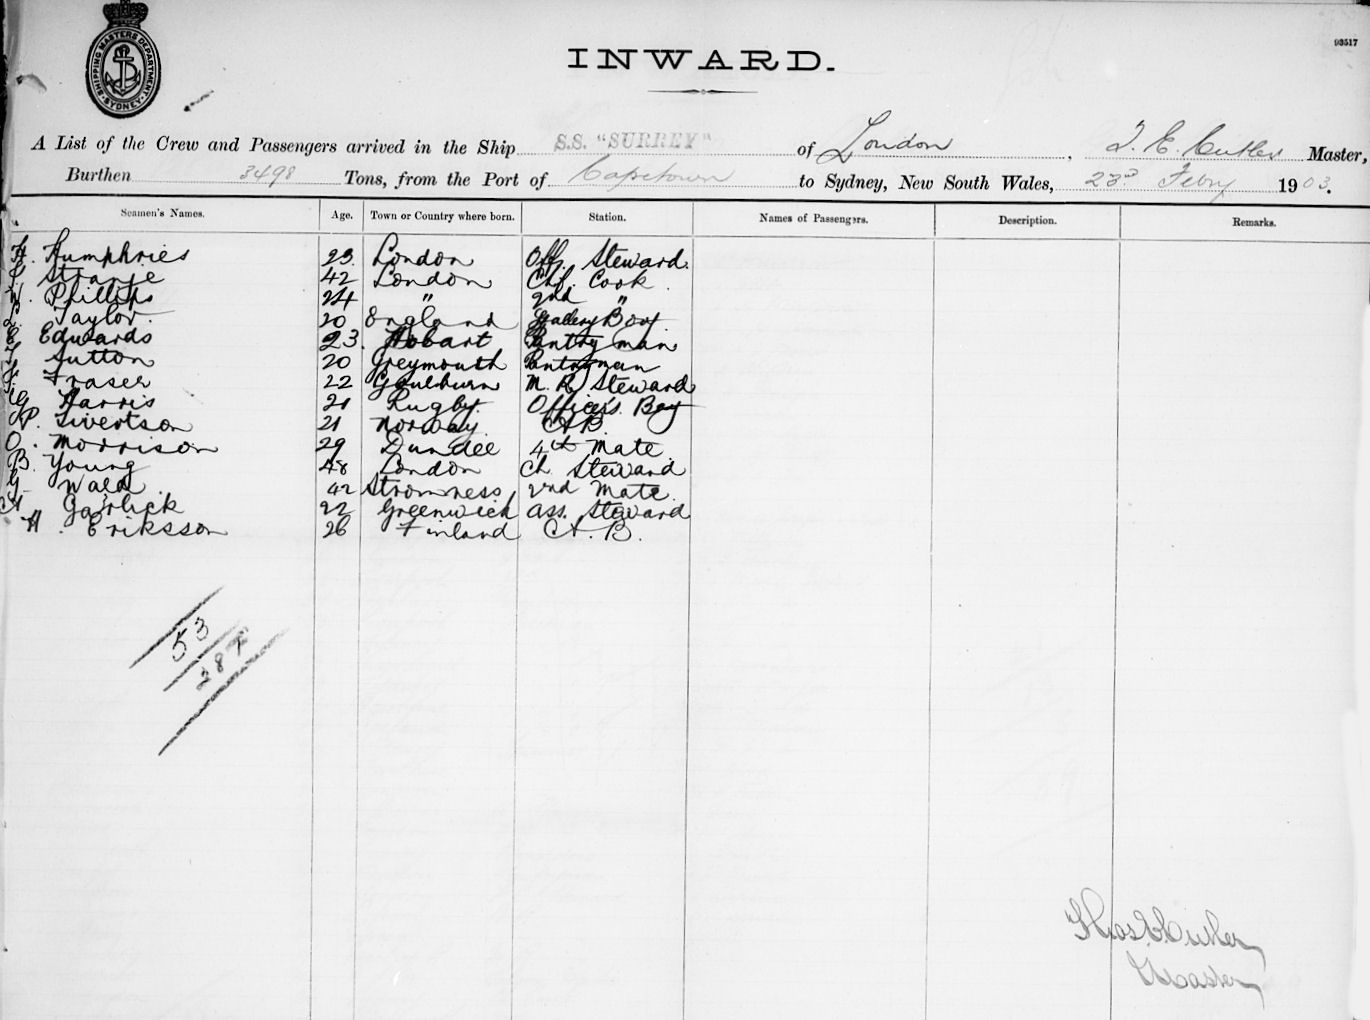 SHIPPING MASTERS DEPARTMENT SYDNEY
93517
INWARD.
A List of the Crew and Passengers arrived in the Ship S.S. "SURREY" of London, T. E. Cutler Master,
Burthen 3498 Tons, from the Port of Capetown to Sydney, New South Wales, 23rd Febry 1903.
Seamen's Names. Age. Town or Country where born. Station. Names of Passengers. Description. Remarks.
H. Humphries 23 London Off. Steward.
Strange 42 London Chf. Cook
W. Phillips 24 " 2nd "
Taylor. 20 England Galley Boy
E Edwards 23 Hobart Pantry man
Sutton 20 Greymouth Pantryman
Fraser 22 Goulburn M. R. Steward
G Harris 21 Rugby. Officers. Boy
P. Sivertson 21 Norway A B.
O. Morrison 29 Dundee 4th Mate
B. Young 48 London Ch. Steward
G Wald 42 Stromness 2nd Mate.
A Garlick 22 Greenwich Ass. Steward
H. Eriksson 26 Finland A. B.
53
Thos E Cutler
Master